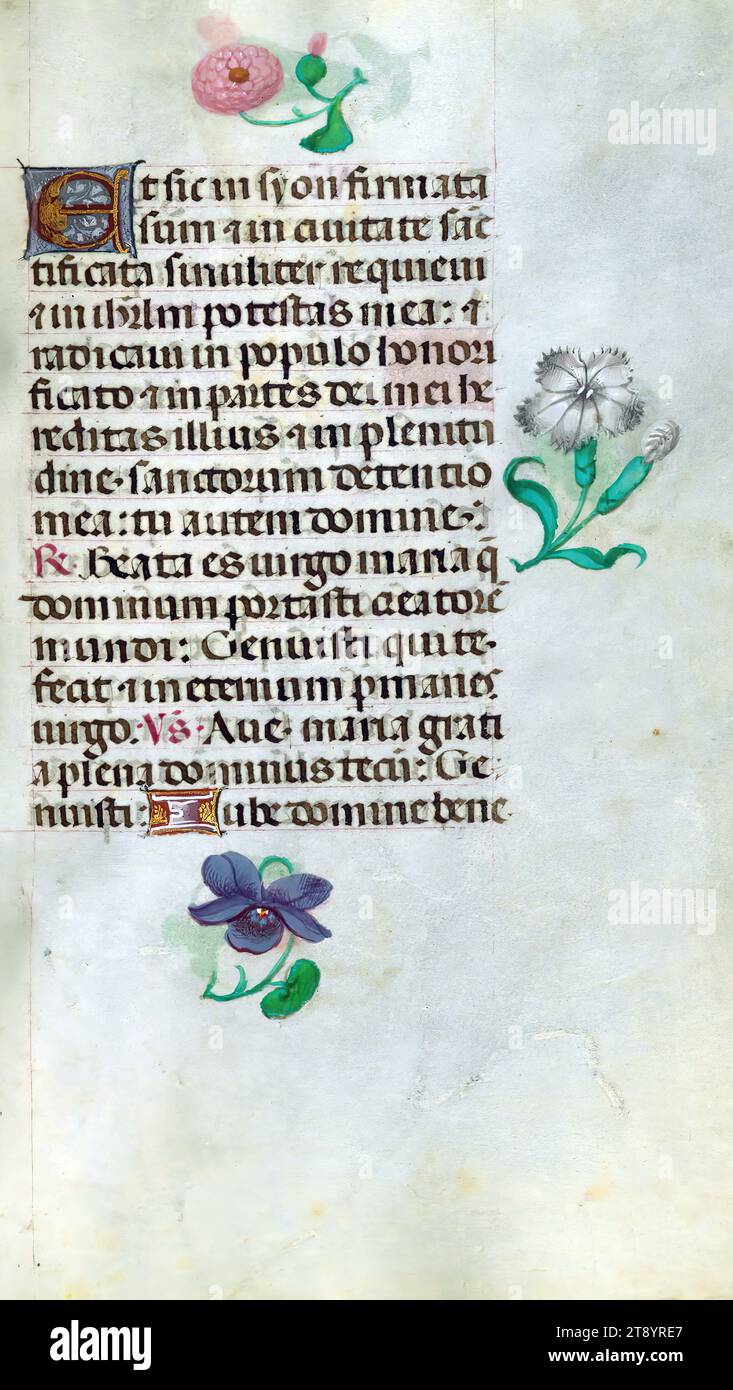 Et sic in syon firmata
sum ⁊ in ciuitate sāc
tificata similiter requieui
⁊ in ihrlm potestas mea: ⁊
radicaui in populo honori
ficato ⁊ in partes dei mei he
reditas illius ⁊ in plenitu
dine· sanctorum detentio
mea: tu autem domine·:
R̷· Beata es uirgo maria q̄
dominum portasti creatorē
mundi: Genuisti qui te·
fecit ⁊ in eternum p̱manes
uirgo: V̷s· Aue· maria grati
a plena dominus tecū: Ge·
nuisti: Iube domine bene·
alamy
alamy
alamy
alamy
Image ID: 2T8YRE7
www.alamy.com